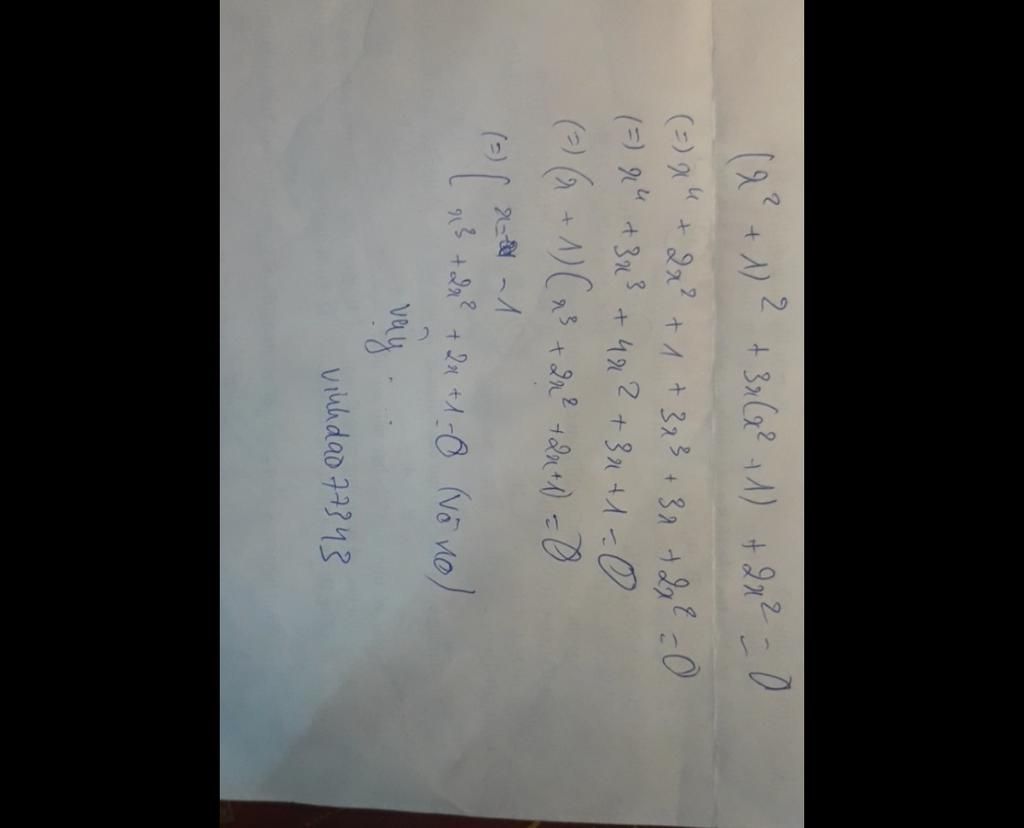 (x² + 1)² + 3x(x² + 1) + 2x² = 0
(=) x⁴ + 2x² + 1 + 3x³ + 3x + 2x² = 0
(=) x⁴ + 3x³ + 4x² + 3x + 1 = 0
(=) (x + 1)(x³ + 2x² + 2x + 1) = 0
(=) [ x = -1
x³ + 2x² + 2x + 1 = 0 (Vô no)
vậy ...
vinhdao77343